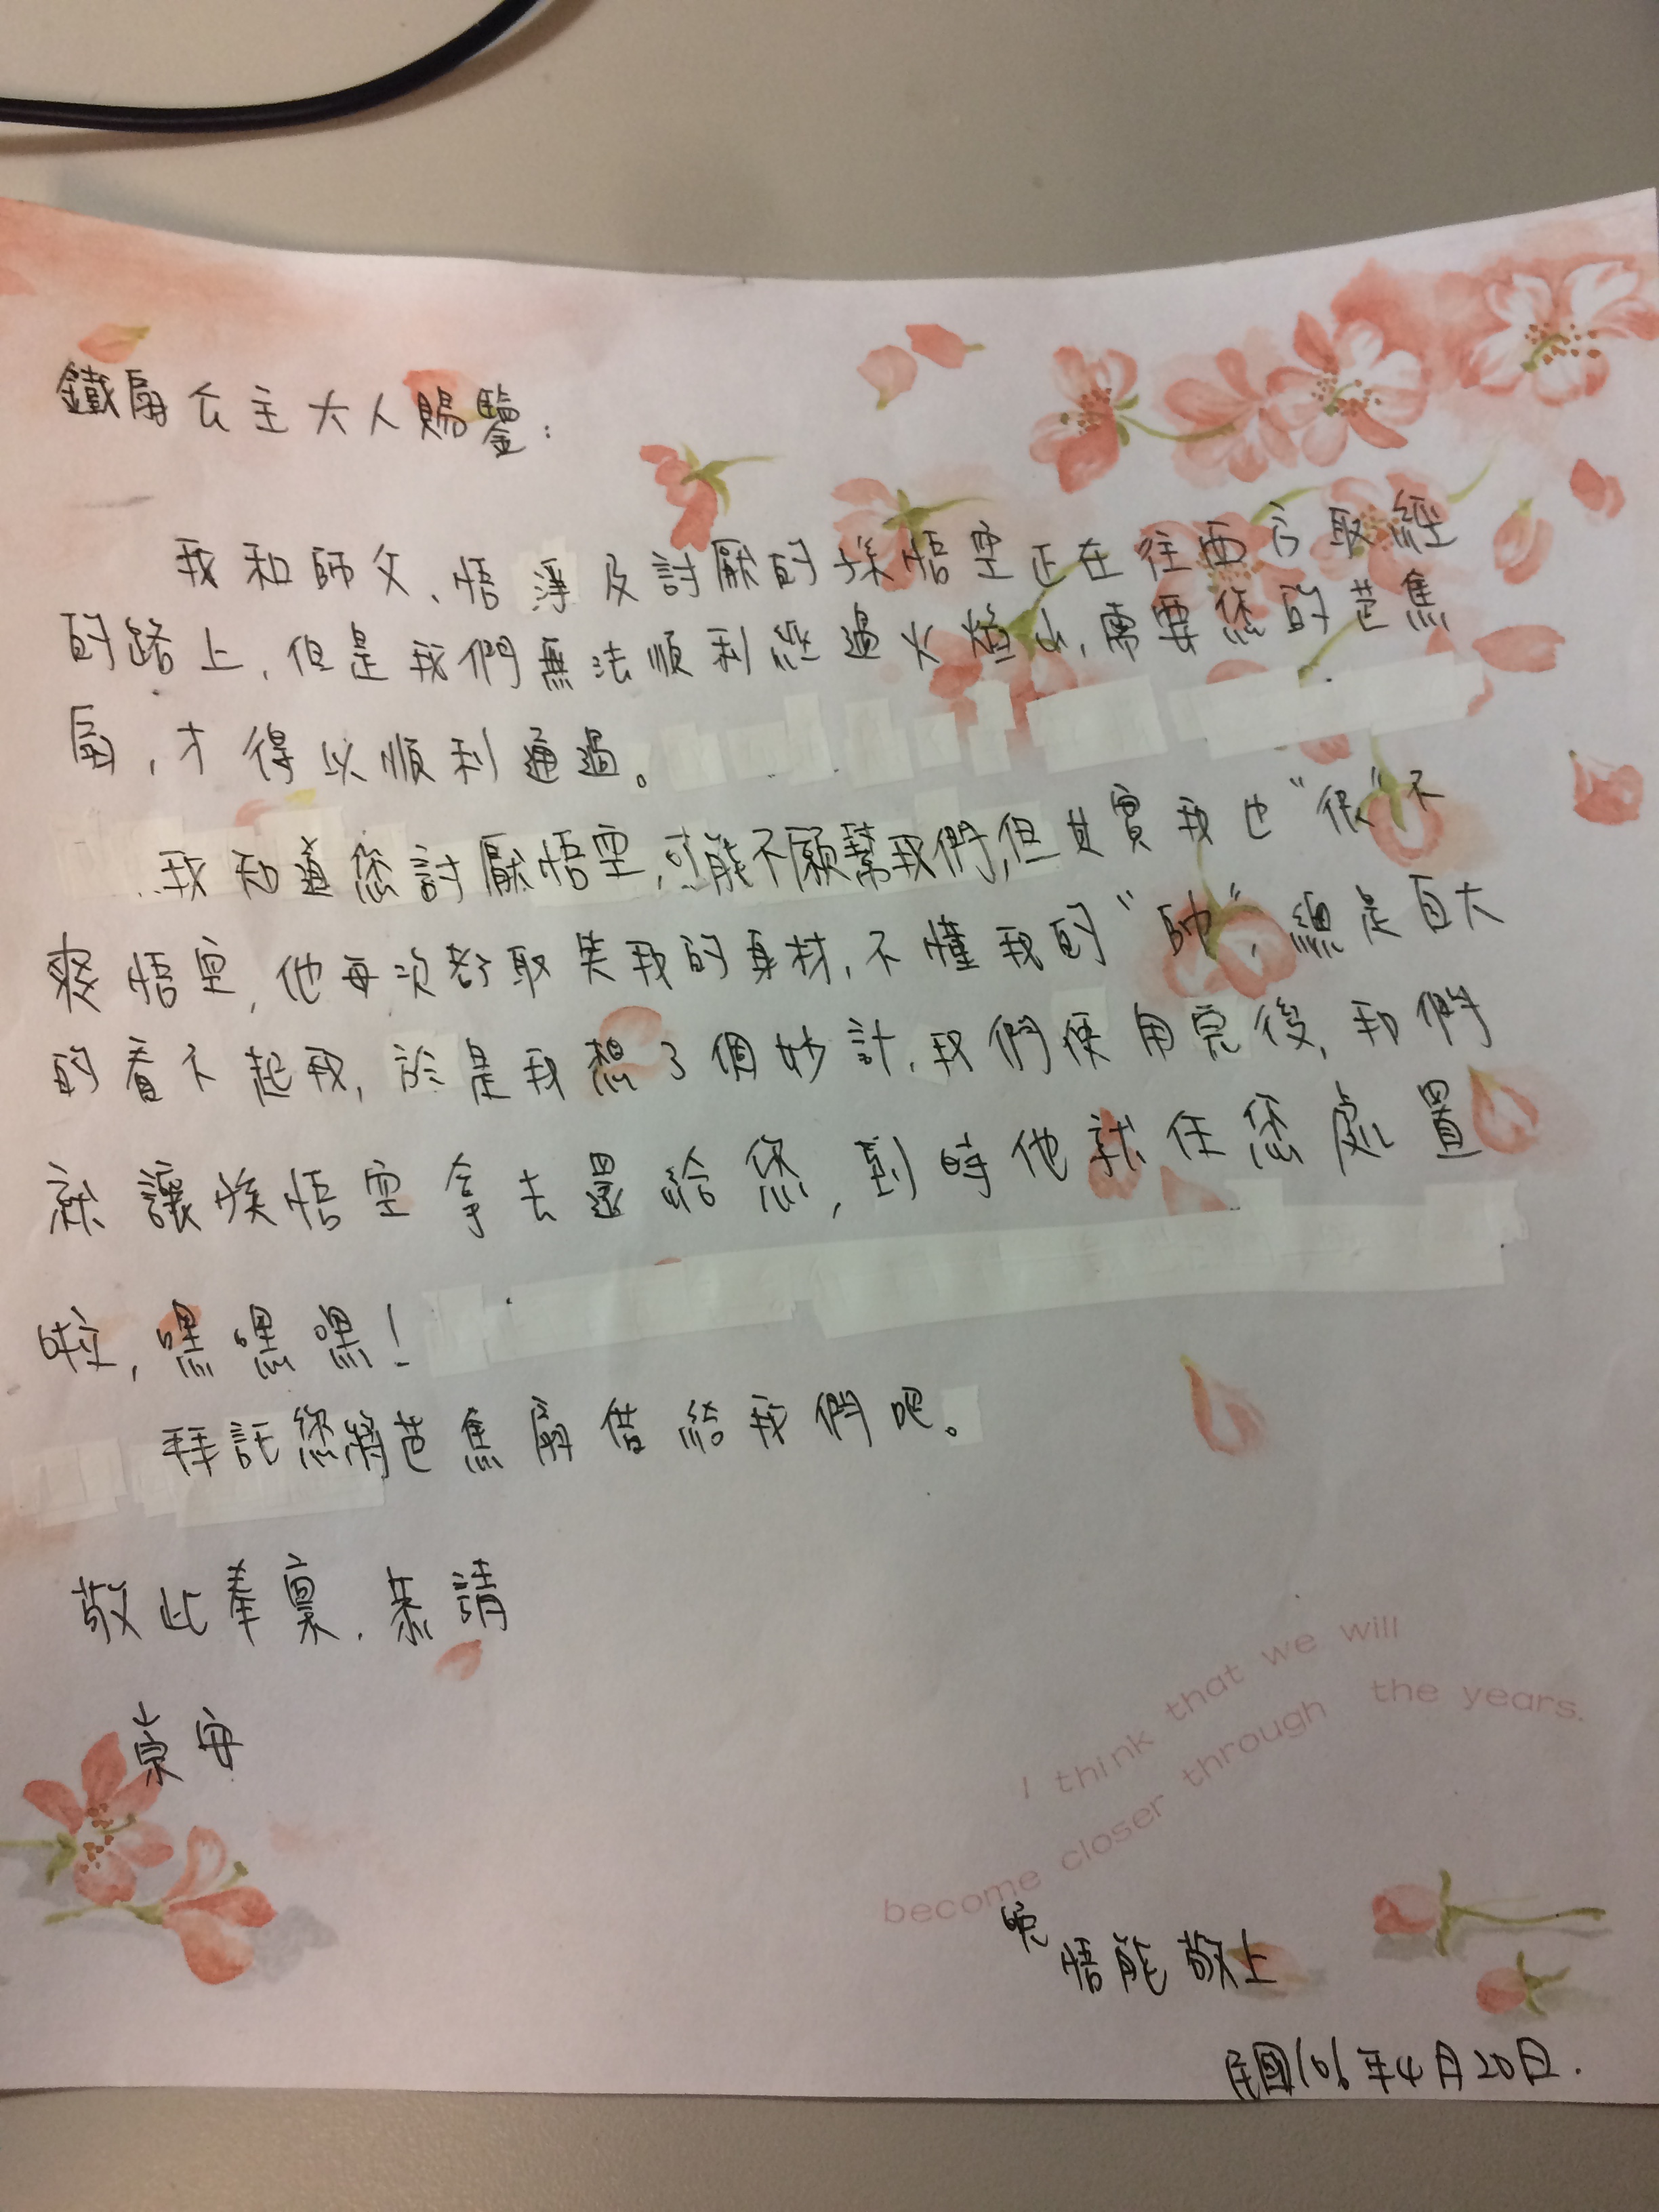 鐵扇公主大人賜鑒:
我和師父、悟淨及討厭的孫悟空正在往西方取經
的路上,但是我們無法順利經過火焰山,需要您的芭焦
扇,才得以順利通過。
我知道您討厭悟空,可能不願幫我們,但其實我也"很"不
爽悟空,他每次都取笑我的身材,不懂我的"帥",總是自大
的看不起我,於是我想了個妙計,我們使用完後,我們
就讓孫悟空拿去還給您,到時他就任您處置
啦,嘿嘿嘿!
拜託您將芭焦扇借給我們吧。
敬此奉稟,恭請
崇安
I think that we will
become closer through the years.
晚
悟能敬上
民國106年4月20日.